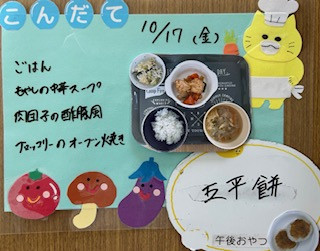 こんだて
10/17(金)
ごはん
もやしの中華スープ
肉団子の酢豚風
ブロッコリーのオーブン焼き
五平餅
午後おやつ